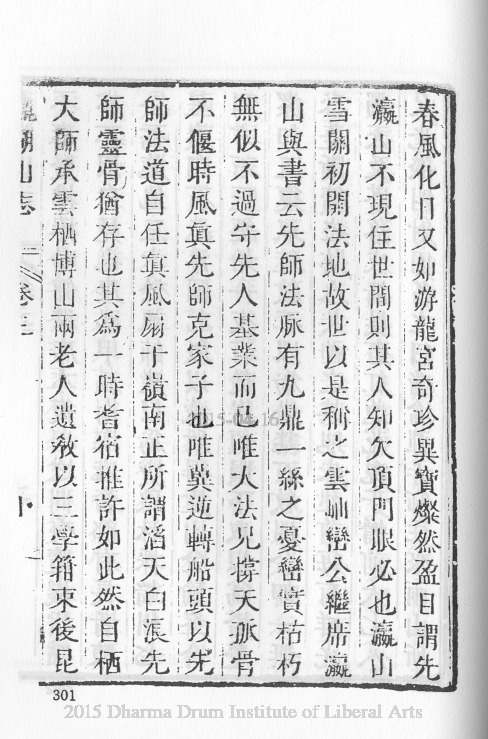 春風化日又如游龍宮奇珍異寶燦然盈目謂先
瀛山不現住世間則其人知欠頂門眼必也瀛山
雪關初開法地故世以是稱之雲岫巒公繼席瀛
山與書云先師法脉有九鼎一絲之憂巒實枯朽
無似不過守先人基業而已唯大法兄撐天孤骨
不偃時風真先師克家子也唯冀逆轉船頭以先
師法道自任真風扇于嶺南正所謂滔天白浪先
師靈骨猶存也其為一時耆宿推許如此然自栖
大師承雲栖博山兩老人遺敎以三學箝束後昆
湖山志 卷之三 十
301
2015-04-16
2015 Dharma Drum Institute of Liberal Arts